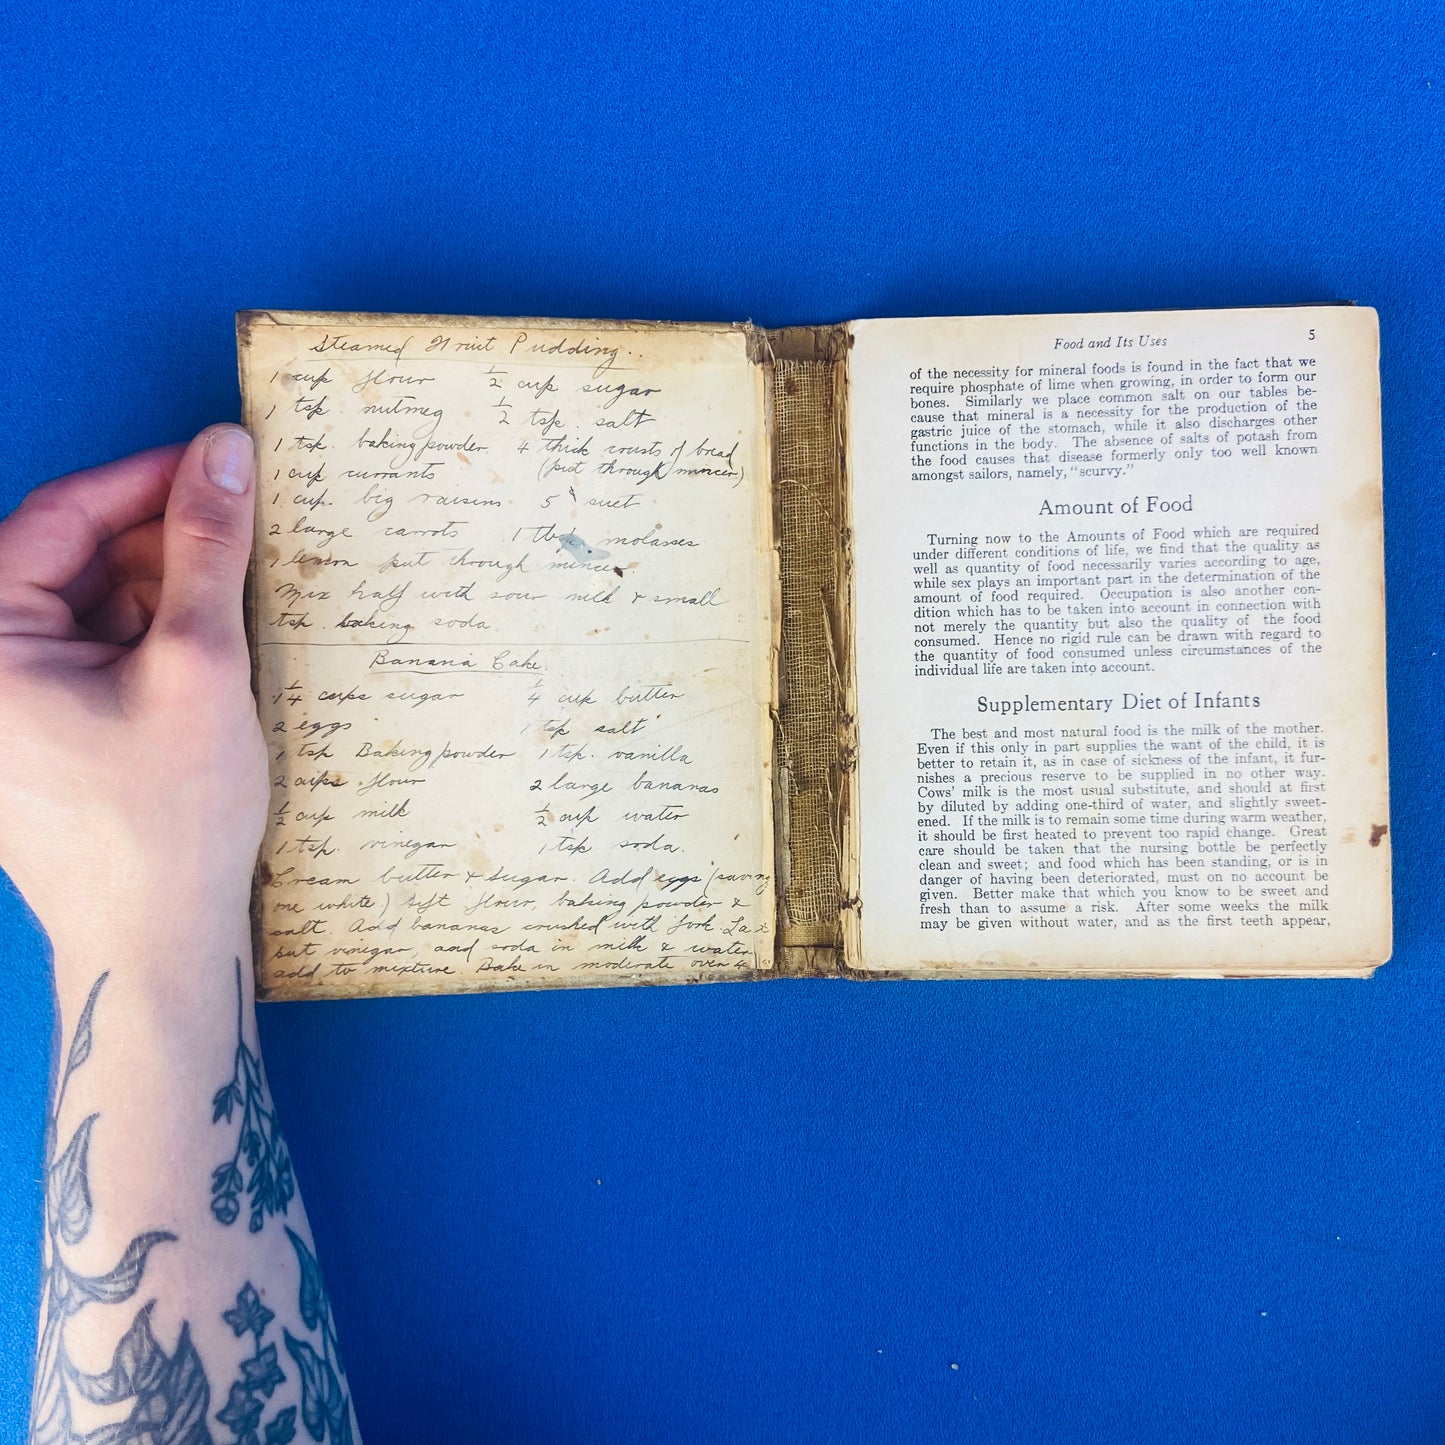 Steamed Fruit Pudding..
1 cup flour ½ cup sugar
1 tsp. nutmeg ½ tsp. salt
1 tsp. baking powder 4 thick crusts of bread
1 cup currants (put through mincer)
1 cup. big raisins 5 ¢ suet
2 large carrots 1 tbsp. molasses
1 lemon put through mincer.
Mix half with sour milk & small
tsp. baking soda.
Banana Cake.
1¼ cups sugar ¼ cup butter
2 eggs 1 tsp salt
1 tsp Baking powder 1 tsp. vanilla
2 cups flour 2 large bananas
½ cup milk ½ cup water
1 tsp. vinegar 1 tsp soda.
Cream butter & sugar. Add eggs (saving
one white) sift flour, baking powder &
salt. Add bananas crushed with fork. Last
put vinegar, and soda in milk & water
add to mixture. Bake in moderate oven
Food and Its Uses 5
of the necessity for mineral foods is found in the fact that we
require phosphate of lime when growing, in order to form our
bones. Similarly we place common salt on our tables be-
cause that mineral is a necessity for the production of the
gastric juice of the stomach, while it also discharges other
functions in the body. The absence of salts of potash from
the food causes that disease formerly only too well known
amongst sailors, namely, "scurvy."
Amount of Food
Turning now to the Amounts of Food which are required
under different conditions of life, we find that the quality as
well as quantity of food necessarily varies according to age,
while sex plays an important part in the determination of the
amount of food required. Occupation is also another con-
dition which has to be taken into account in connection with
not merely the quantity but also the quality of the food
consumed. Hence no rigid rule can be drawn with regard to
the quantity of food consumed unless circumstances of the
individual life are taken into account.
Supplementary Diet of Infants
The best and most natural food is the milk of the mother.
Even if this only in part supplies the want of the child, it is
better to retain it, as in case of sickness of the infant, it fur-
nishes a precious reserve to be supplied in no other way.
Cows' milk is the most usual substitute, and should at first
by diluted by adding one-third of water, and slightly sweet-
ened. If the milk is to remain some time during warm weather,
it should be first heated to prevent too rapid change. Great
care should be taken that the nursing bottle be perfectly
clean and sweet; and food which has been standing, or is in
danger of having been deteriorated, must on no account be
given. Better make that which you know to be sweet and
fresh than to assume a risk. After some weeks the milk
may be given without water, and as the first teeth appear,